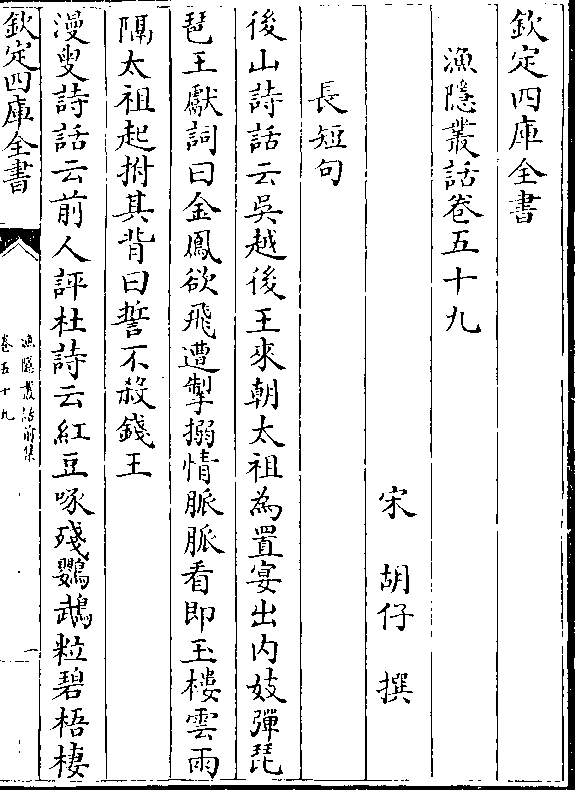 欽定四庫全書
漁隱叢話卷五十九
宋 胡仔 撰
長短句
後山詩話云吳越後王來朝太祖為置宴出内妓彈琵
琶王獻詞曰金鳳欲飛遭掣搦情脈脈看即玉樓雲雨
隔太祖起拊其背曰誓不殺錢王
漫叟詩話云前人評杜詩云紅豆啄殘鸚鵡粒碧梧棲
欽定四庫全書
漁隱叢話前集
卷五十九
一